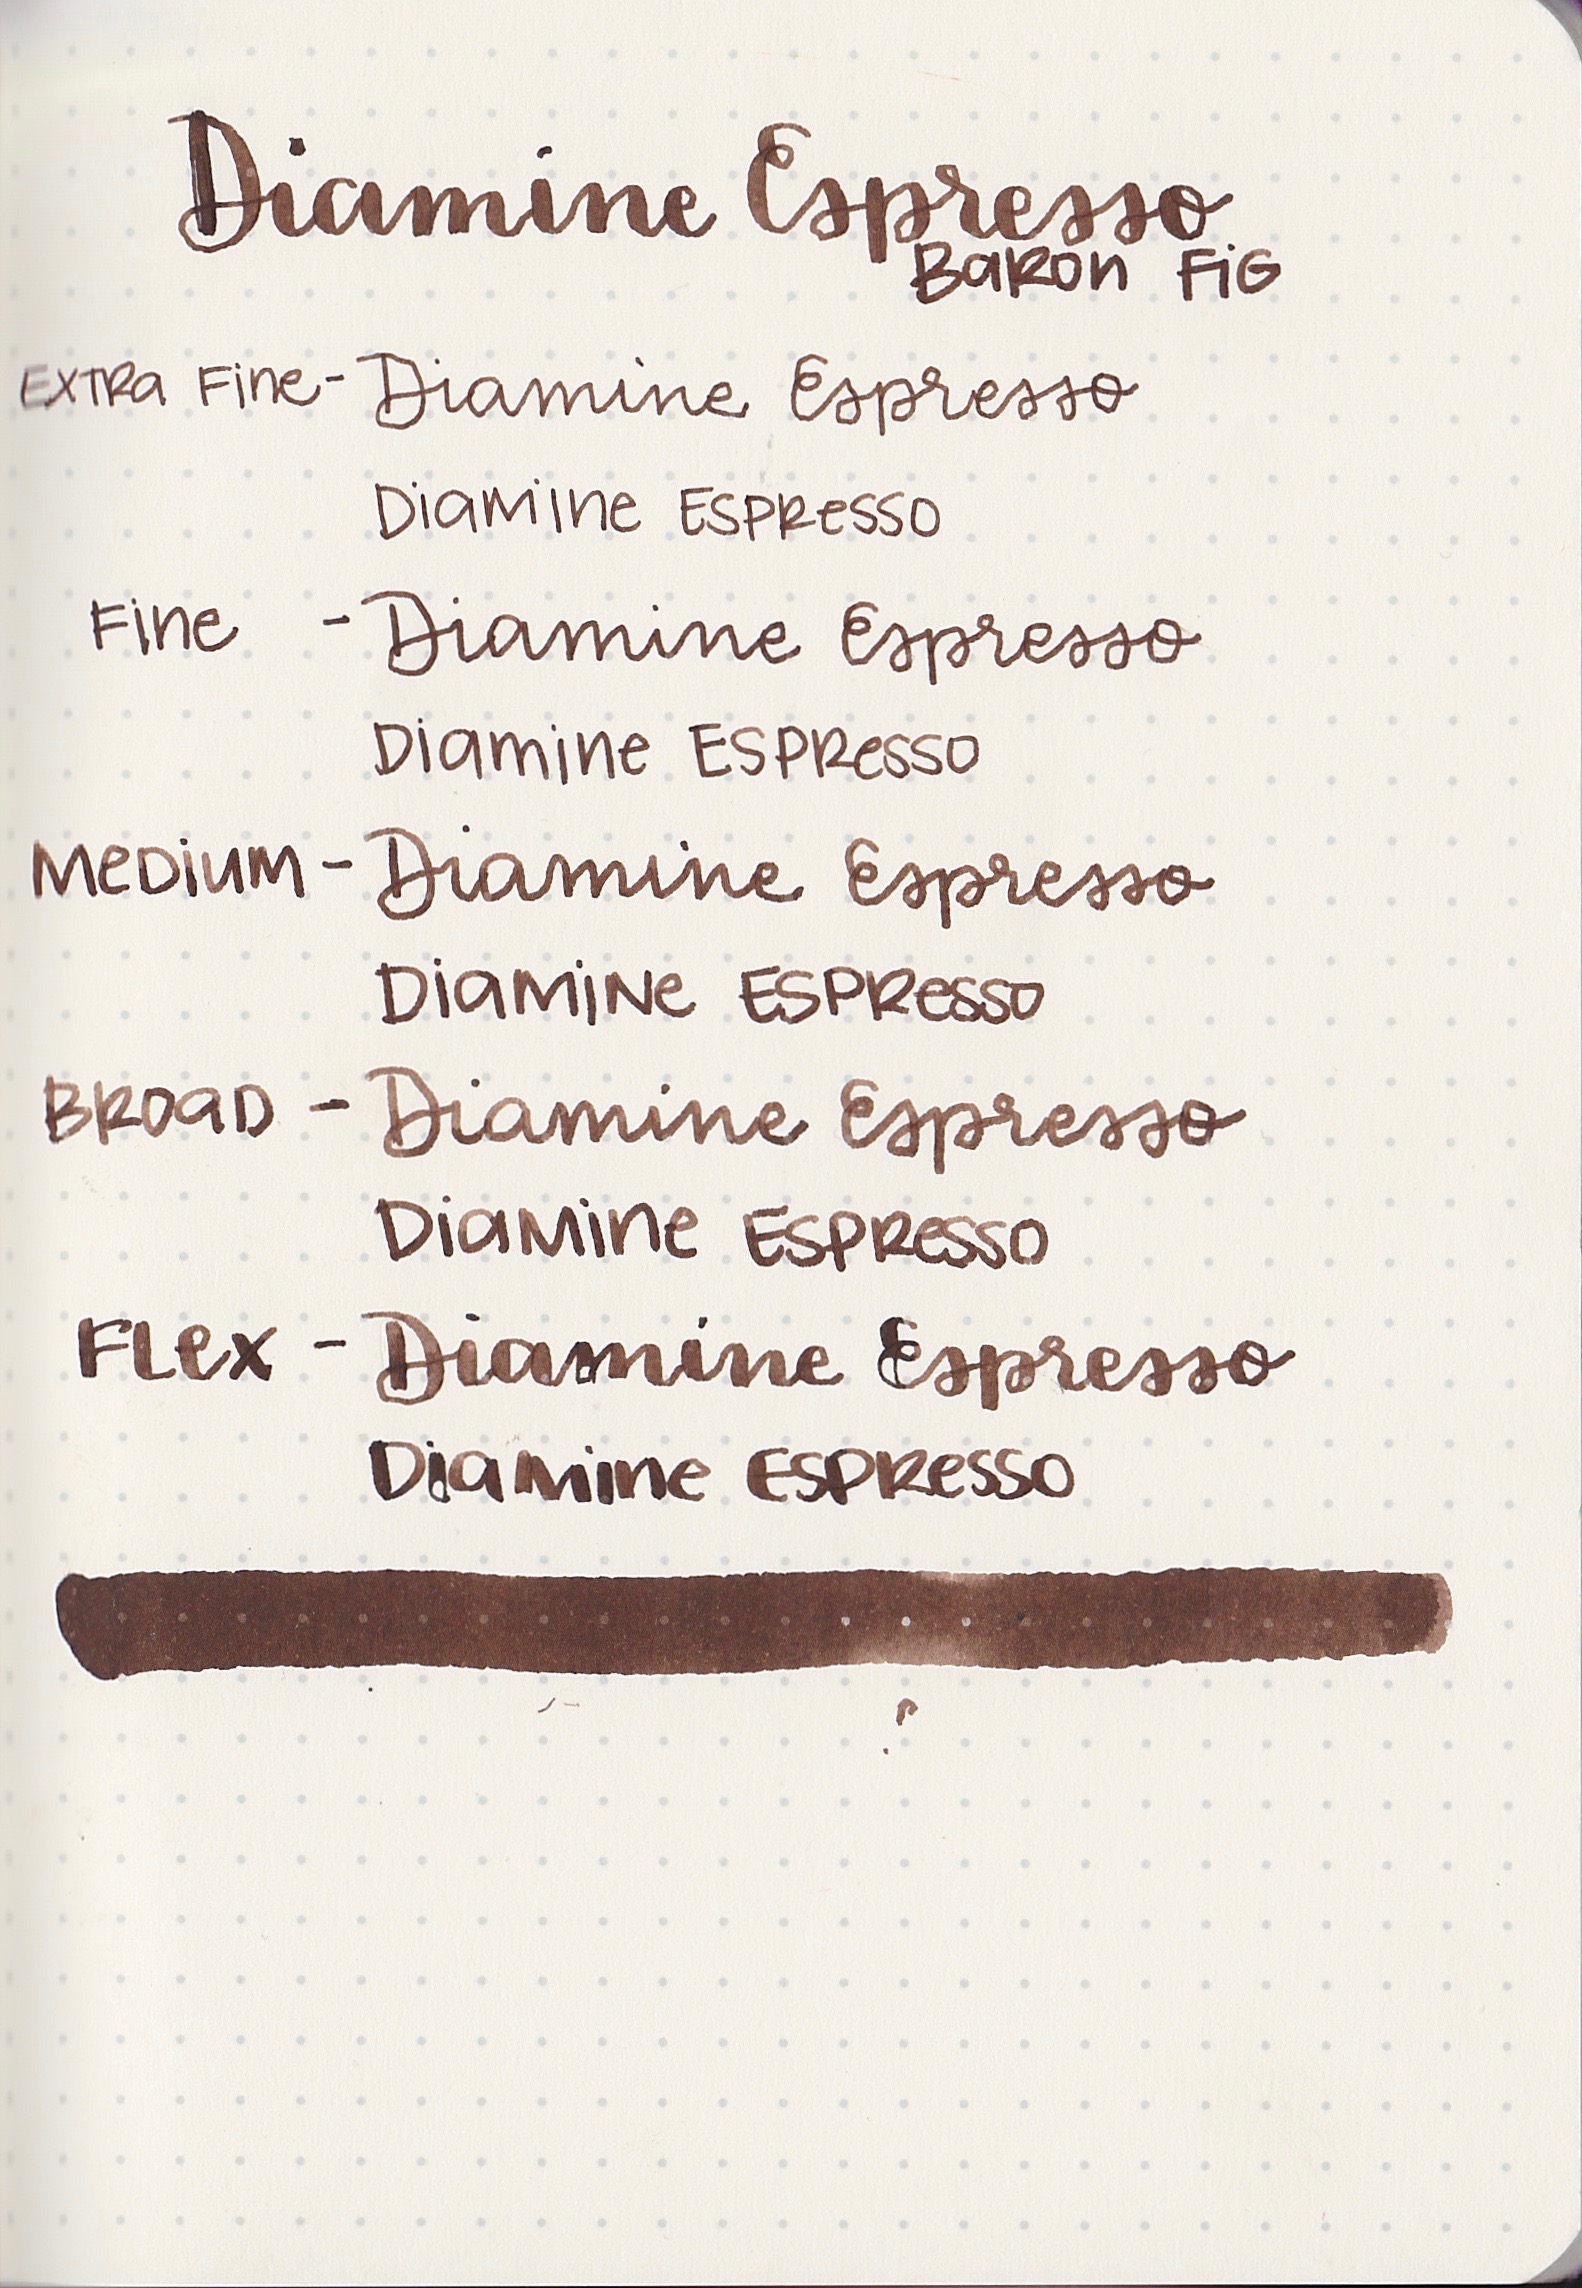 Diamine Espresso
Baron Fig
Extra Fine - Diamine Espresso
Diamine Espresso
Fine - Diamine Espresso
Diamine Espresso
Medium - Diamine Espresso
Diamine Espresso
Broad - Diamine Espresso
Diamine Espresso
Flex - Diamine Espresso
Diamine Espresso